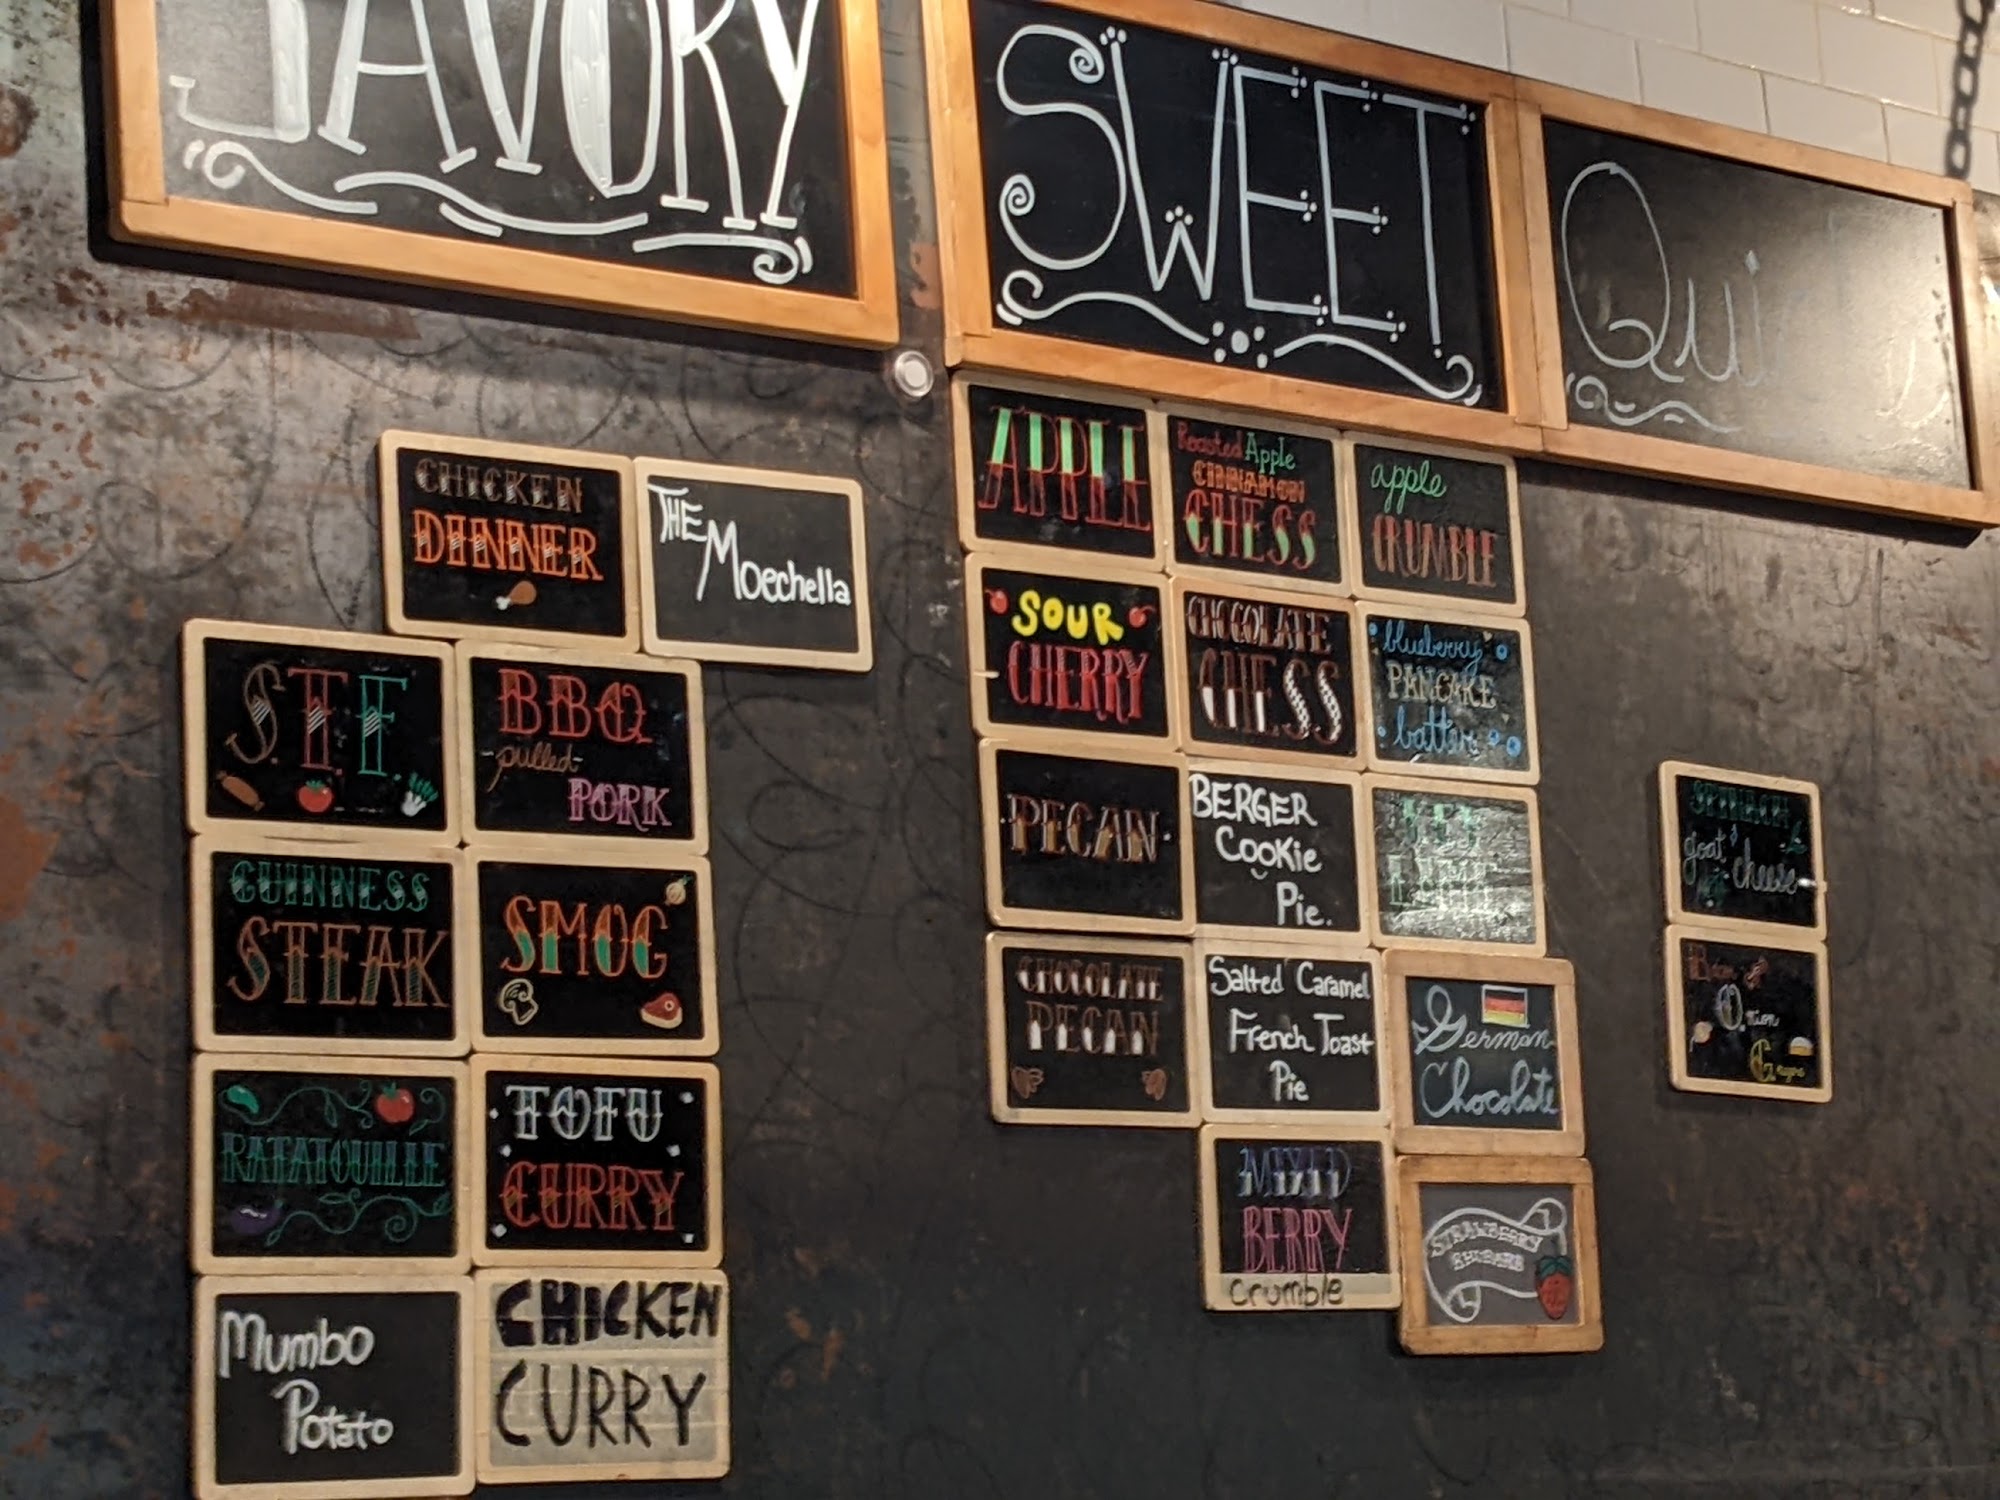 SAVORY
SWEET
Qui
CHICKEN
DINNER
THE
Moechella
S.T.F.
BBQ
-pulled-
PORK
GUINNESS
STEAK
SMOG
RATATOUILLE
TOFU
CURRY
Mumbo
Potato
CHICKEN
CURRY
APPLE
Roasted Apple
CINNAMON
CHESS
apple
CRUMBLE
SOUR
CHERRY
CHOCOLATE
CHESS
blueberry
PANCAKE
batter
PECAN
BERGER
Cookie
Pie.
KEY
LIME
CHOCOLATE
PECAN
Salted Caramel
French Toast
Pie
German
Chocolate
MIXED
BERRY
Crumble
STRAWBERRY
RHUBARB
SPINACH
goat
cheese
Onion